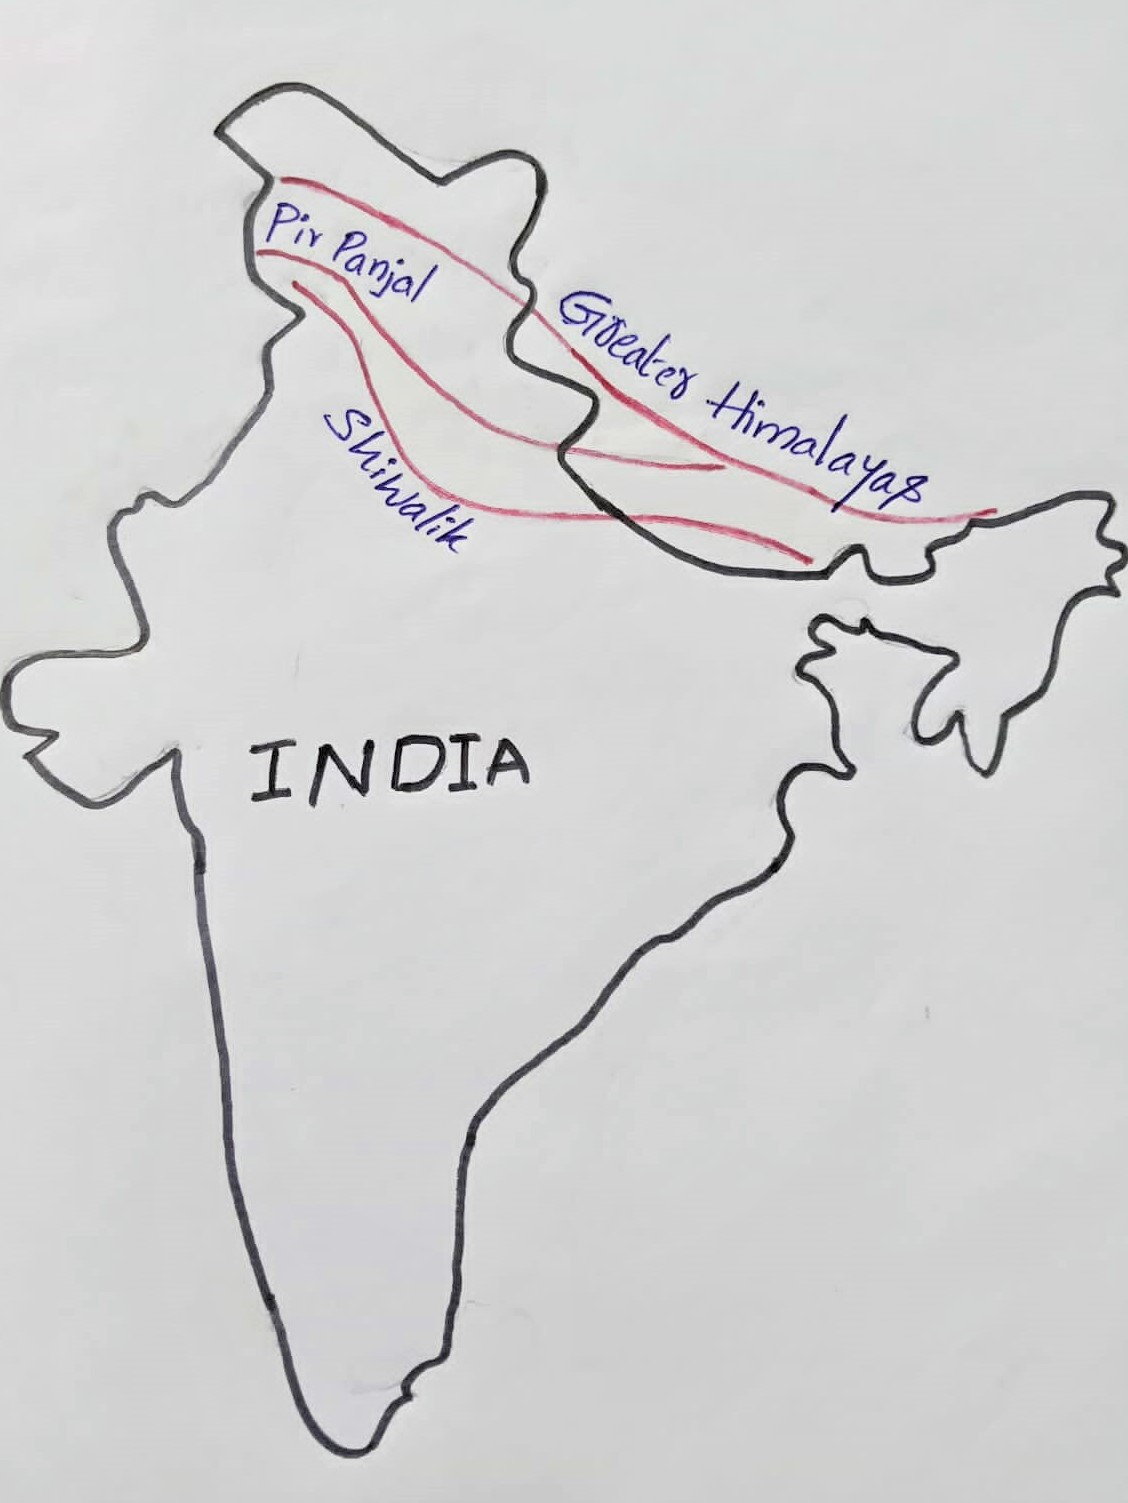 Pir Panjal
Greater Himalayas
Shiwalik
INDIA